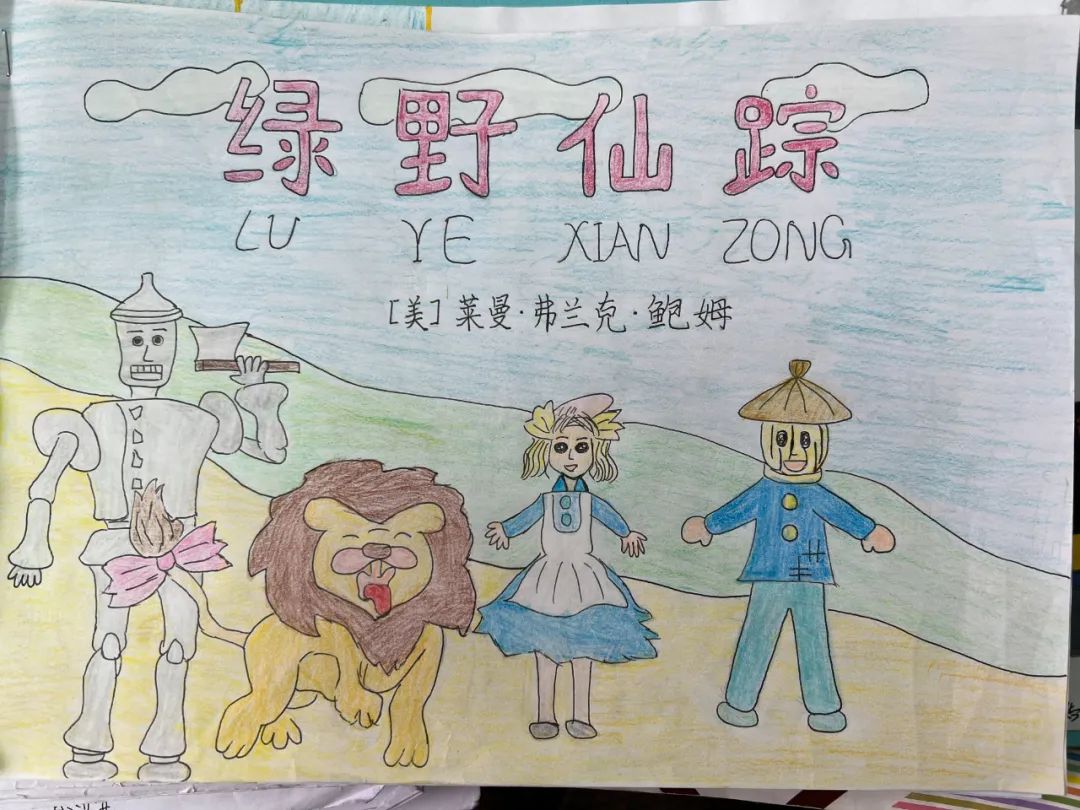 绿野仙踪
LU YE XIAN ZONG
[美]莱曼·弗兰克·鲍姆